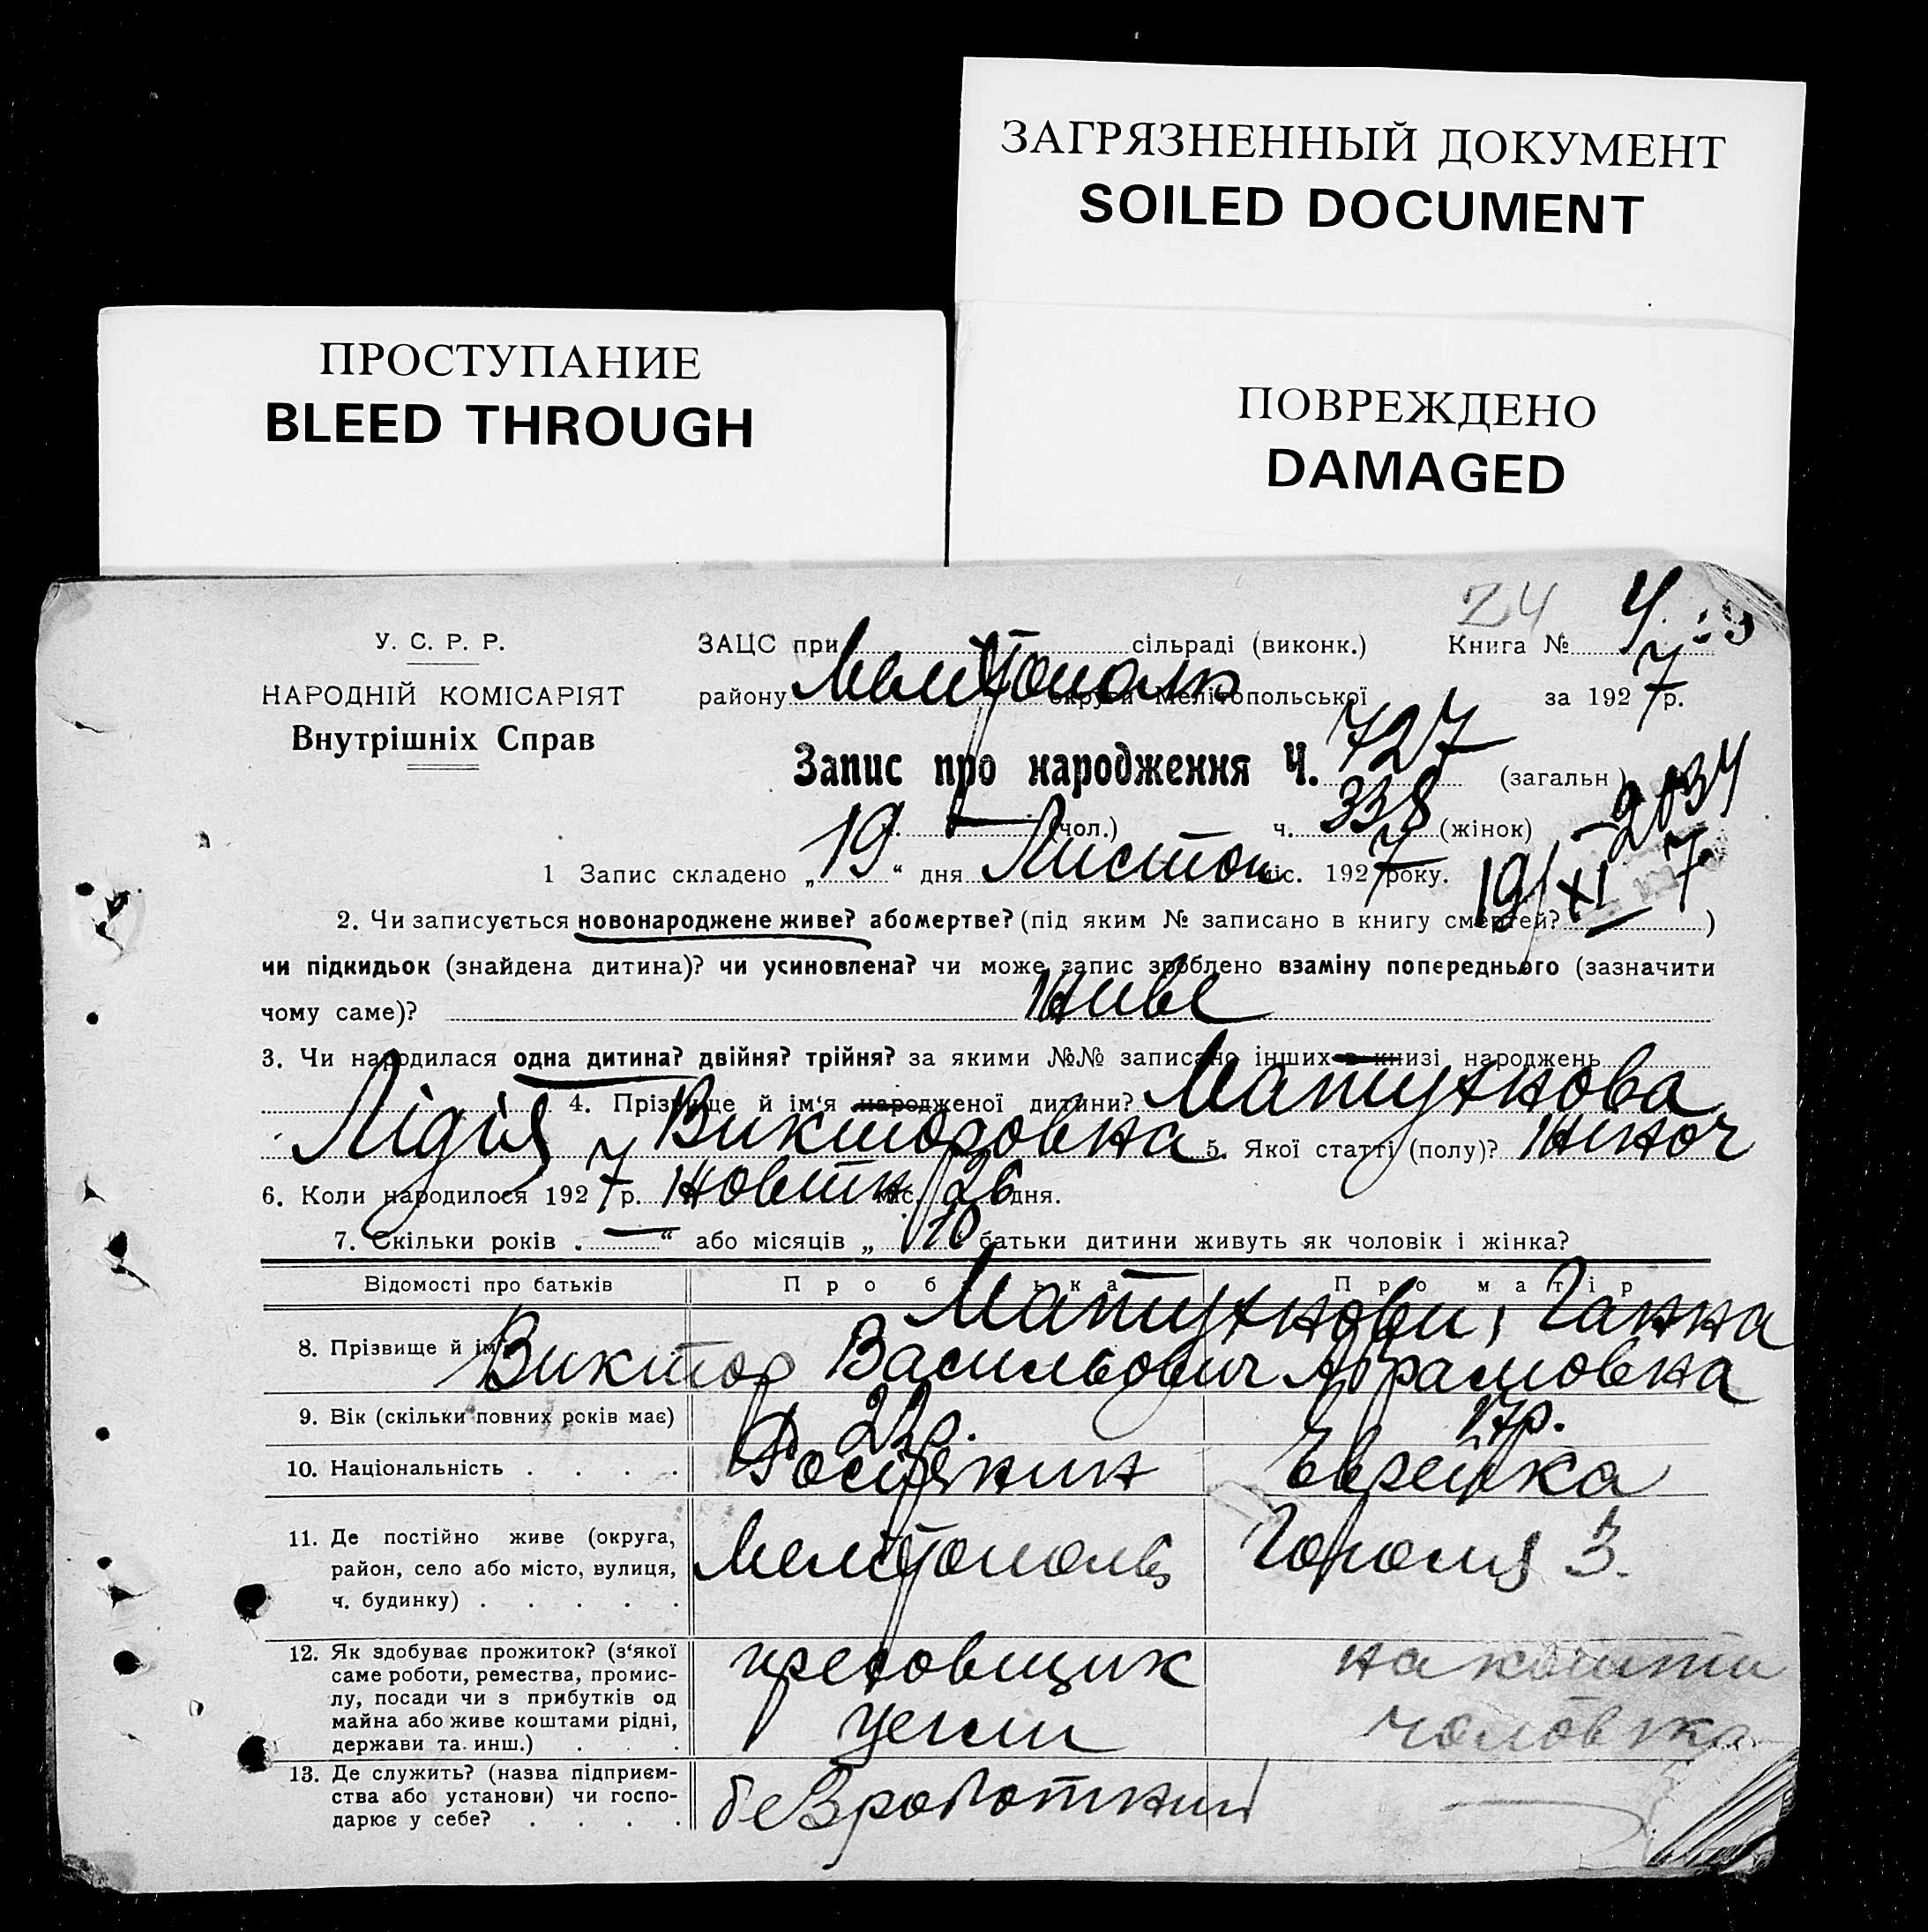 ЗАГРЯЗНЕННЫЙ ДОКУМЕНТ
SOILED DOCUMENT
ПРОСТУПАНИЕ
BLEED THROUGH
ПОВРЕЖДЕНО
DAMAGED
24
У. С. Р. Р.
ЗАЦС при сільраді (виконк.) Книга №
НАРОДНІЙ КОМІСАРІЯТ
Внутрішніх Справ
району Мелітополь округи Мелітопольської за 1927 р.
Запис про народження Ч. 727 (загальн.) 2034
ч. — (чол.) ч. 338 (жінок)
1 Запис складено „19“ дня Листоп міс. 1927 року. 19/XI 7
2. Чи записується новонароджене живе? або мертве? (під яким № записано в книгу смертей? )
чи підкидьок (знайдена дитина)? чи усиновлена? чи може запис зроблено взаміну попереднього (зазначити
чому саме)? живе
3. Чи народилася одна дитина? двійня? трійня? за якими №№ записано інших в книзі народжень
4. Прізвище й ім‘я народженої дитини? Матузкова
Лідія Викторовна 5. Якої статті (полу)? жіноч
6. Коли народилося 1927 р. жовтн міс. 26 дня.
7. Скільки років „—“ або місяців „10 батьки дитини живуть як чоловік і жінка?
Відомості про батьків Про батька Про матір
8. Прізвище й ім‘я
Виктор Васильович
Ганна
Абрамовна
9. Вік (скільки повних років має) 22р. 17р.
10. Національність . . . . Росіянин Еврейка
11. Де постійно живе (округа,
район, село або місто, вулиця,
ч. будинку) . . . . .
Мелітополь Гоголя 3.
12. Як здобуває прожиток? (з‘якої
саме роботи, ремества, промис-
лу, посади чи з прибутків од
майна або живе коштами рідні,
держави та. инш.) . . .
пресовщик
цегли
на кошти
чоловіка
13. Де служить? (назва підприєм-
ства або установи) чи госпо-
дарює у себе? . . . .
безработний —